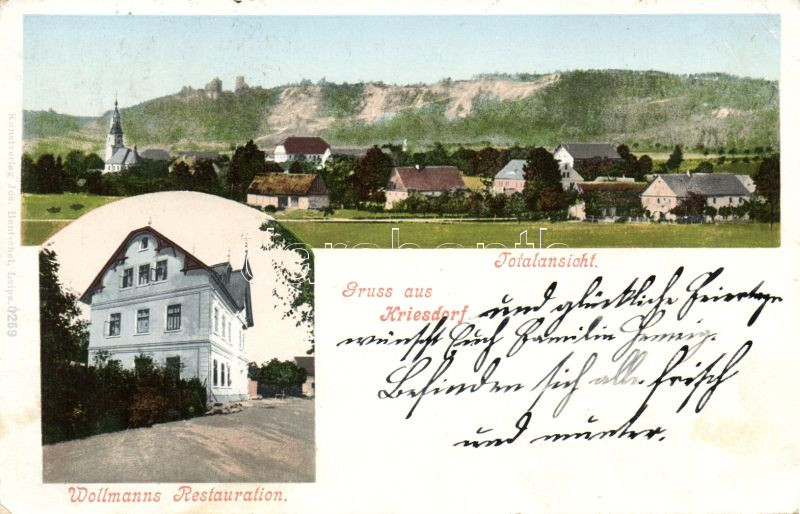 Totalansicht.
Gruss aus
Kriesdorf.
und glückliche Feiertage
wünscht Euch Familie Hennig.
Befinden sich alle frisch
und munter.
Wollmanns Restauration.
Kunstverlag Jos. Hentschel, Leipa. 0259
darabanth